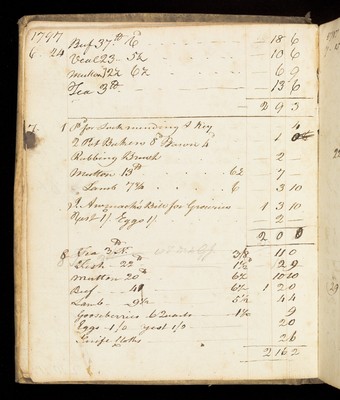 1797
6 24 Beef 37 lb 6 — 18 6
Veal 23 - 5½ — 10 6
Mutton 12½ 6½ — 6 9
Tea 3 lb — 13 6
2 9 3
7 1 Pd for Lock mending & Key 4
2 Pt Baken 8d Brawn 4 1 0
Rubbing Brush — 2 —
Mutton 13 lb 6½ — 7 —
Lamb 7¼ 6 3 10
Bill for Groceries 1 3 10
Yest 1/. Eggs 1/. — 2 —
2 0 0
8 Tea 3 3/8 11 0
22 lb 1½ 2 9
Mutton 20 lb 6½ 10 10
Beef 41 6½ 1 2 0
Lamb 9¼ 5½ 4 4
Gooseberries 6 Quarts 1½ 9
Eggs 1/0 yest 1/0 2 0
Knife Cloths 2 6
2 16 2